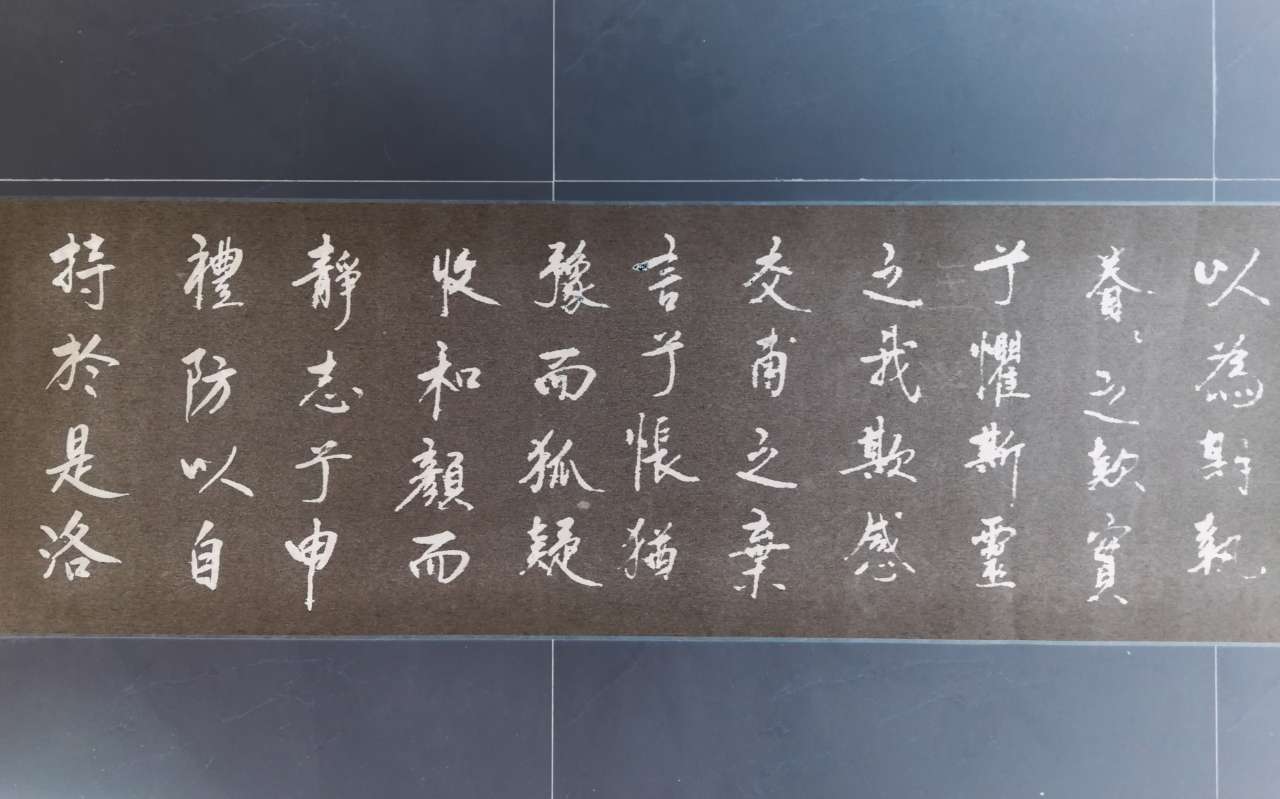 以為期執
眷〻之款實
兮懼斯靈
之我欺感
交甫之棄
言兮悵猶
豫而狐疑
收和顏而
靜志兮申
禮防以自
持於是洛